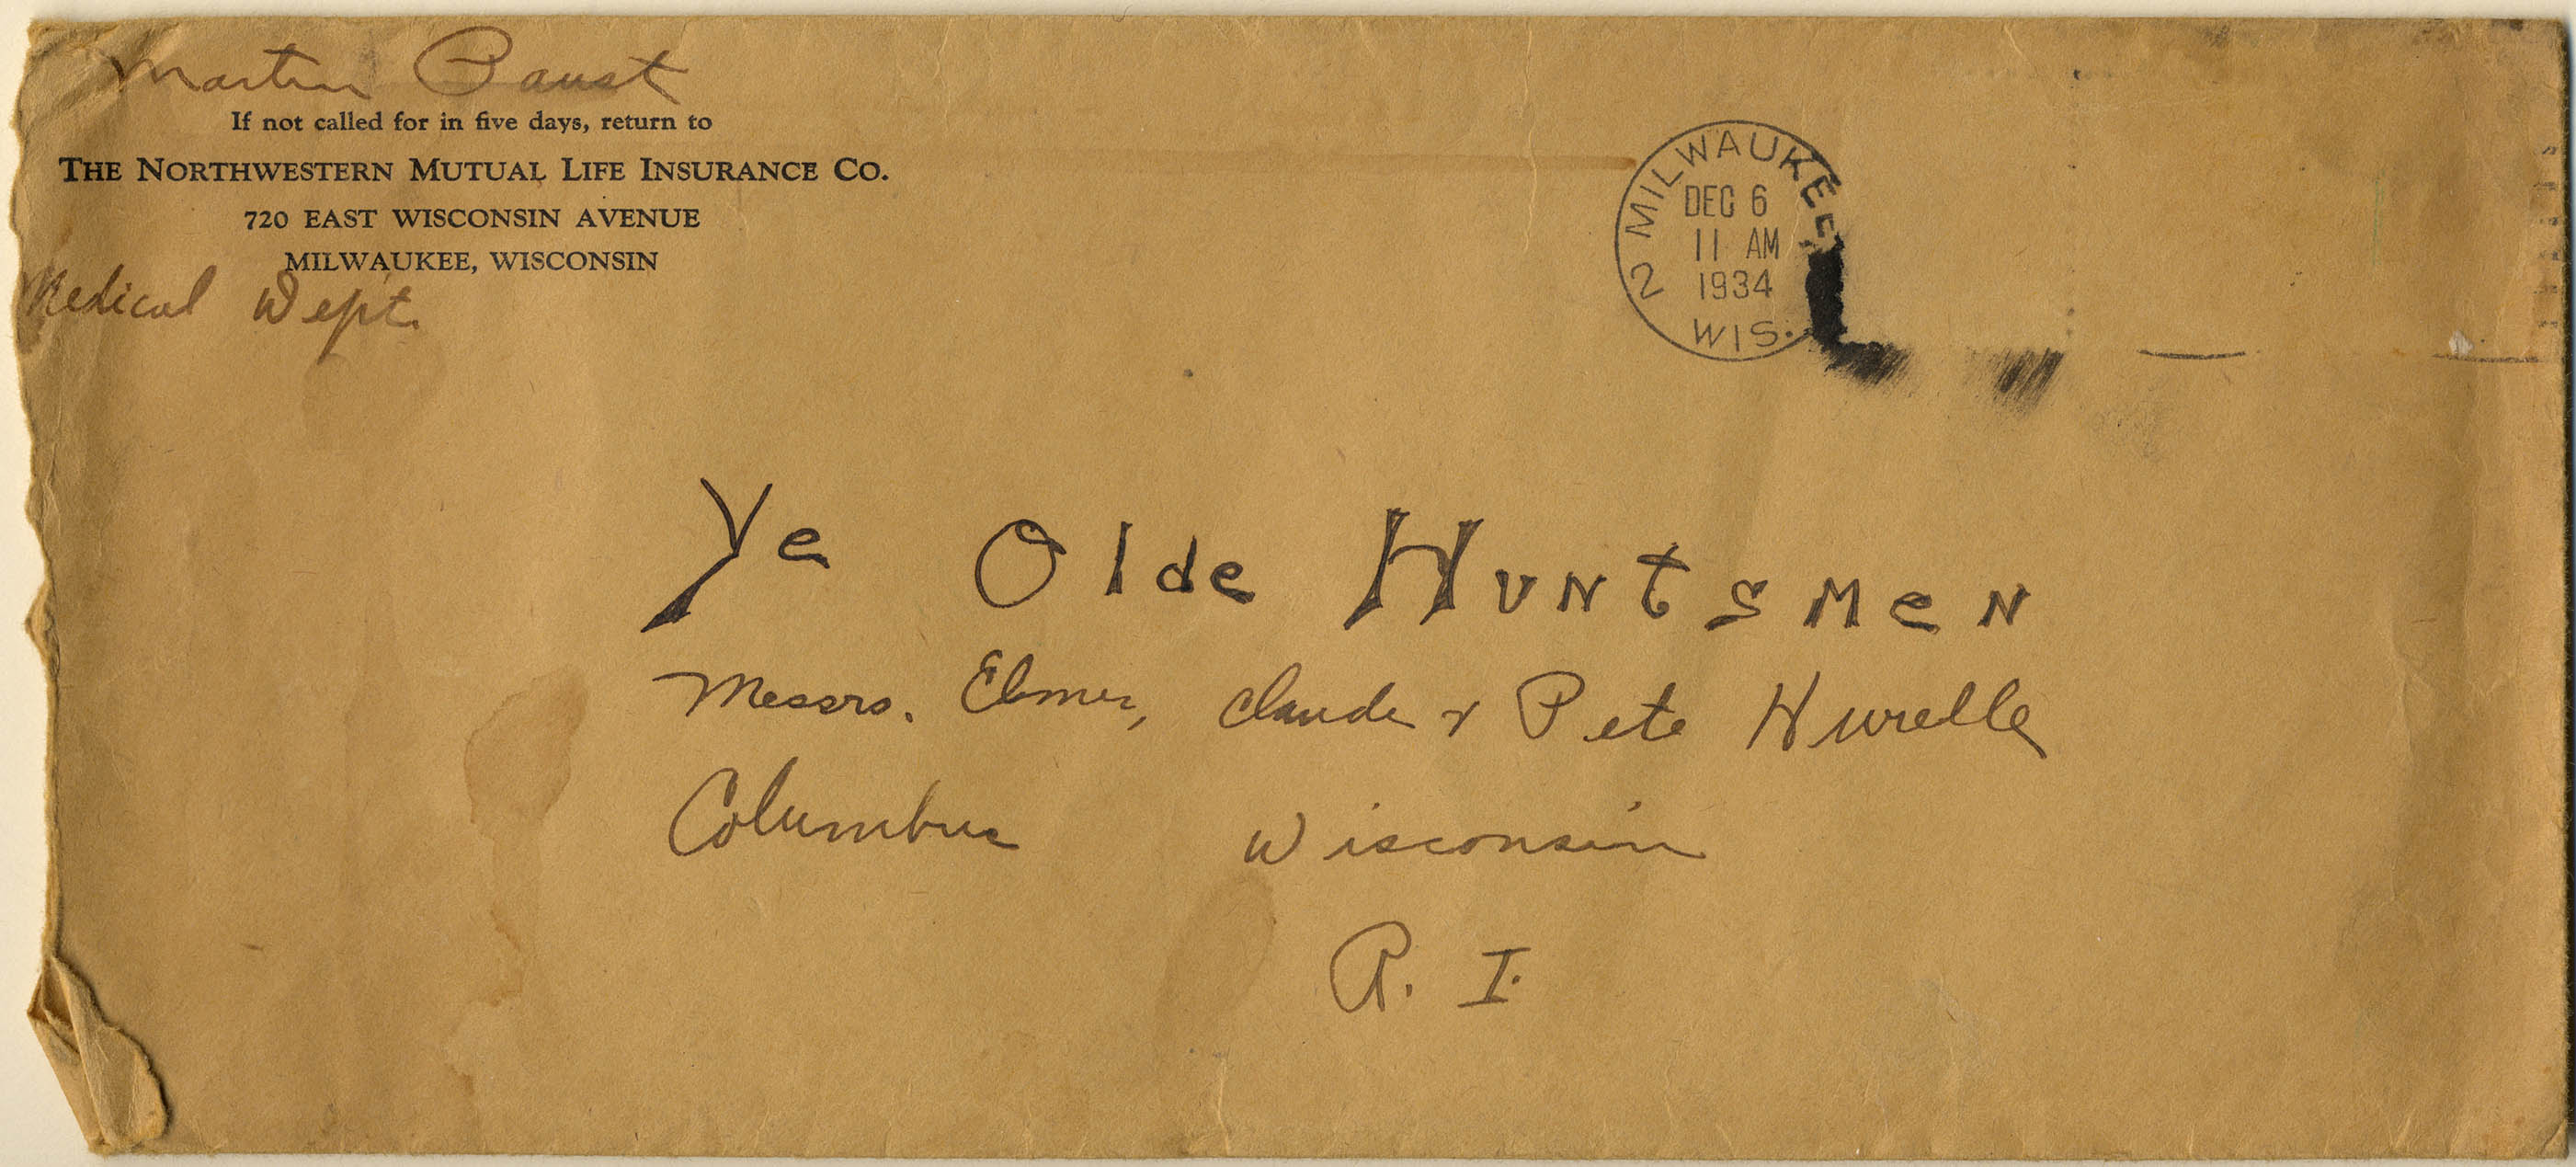 Martin Paust
If not called for in five days, return to
THE NORTHWESTERN MUTUAL LIFE INSURANCE CO.
720 EAST WISCONSIN AVENUE
MILWAUKEE, WISCONSIN
Medical Dept.
MILWAUKEE
DEC 6
11 AM
1934
2
WIS.
Ye Olde Huntsmen
Messrs. Elmer, Claude & Pete
Columbus Wisconsin
R. I.